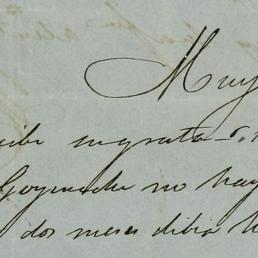 Muy
ingrata
Goyeneche no hay
dos meses dibia